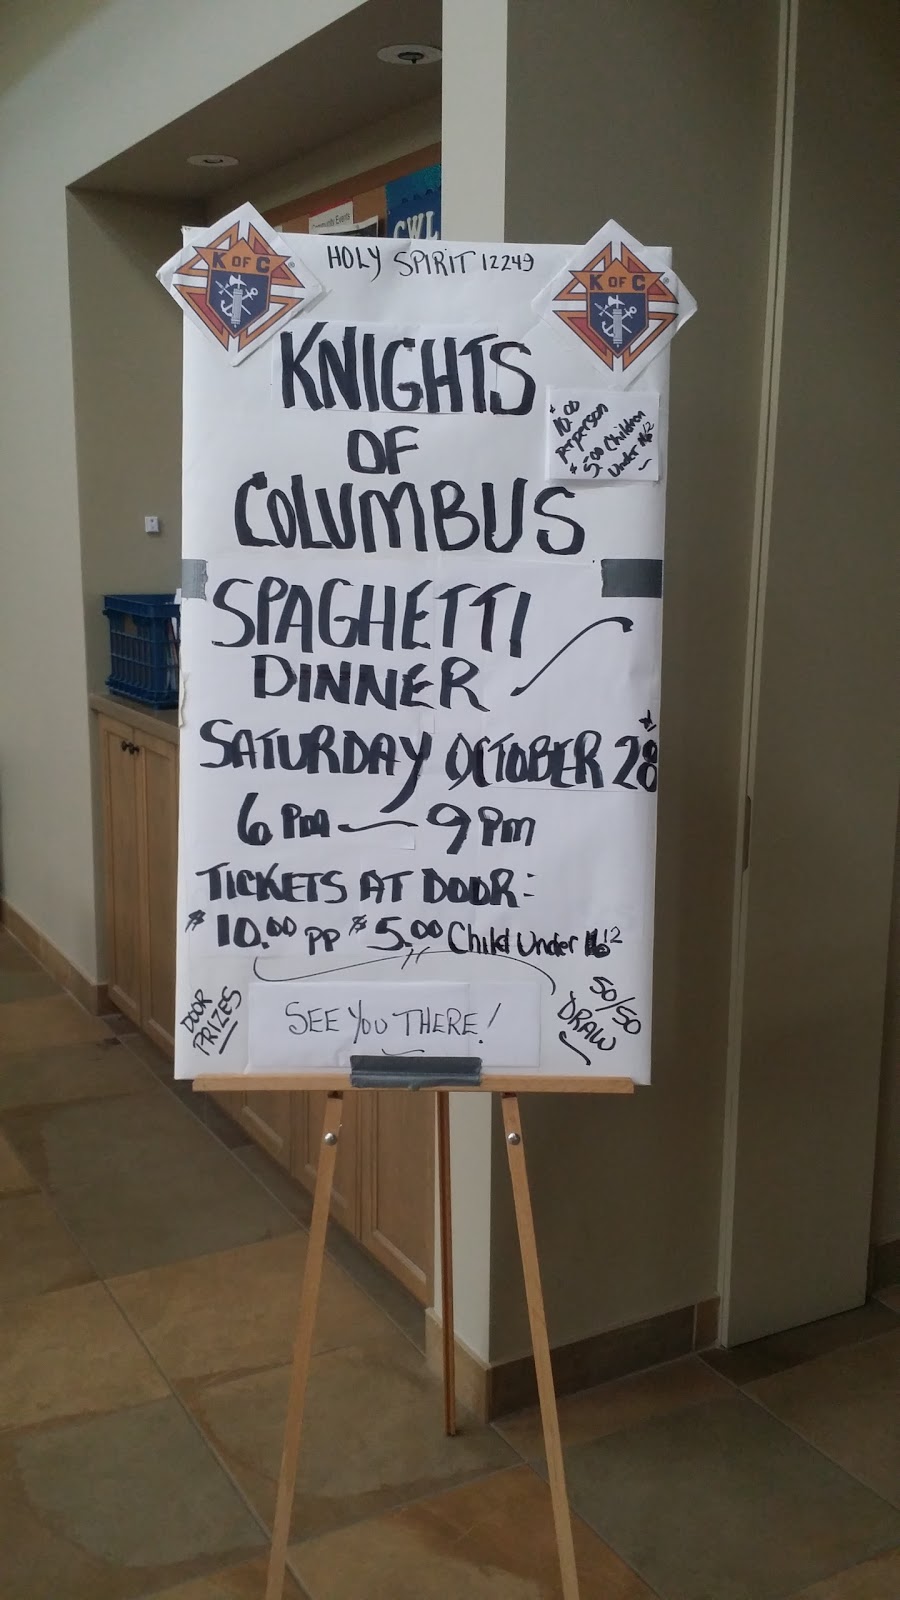 Community Events
CWL
HOLY SPIRIT 12249
K OF C
K OF C
KNIGHTS
OF
COLUMBUS
$10.00
perperson
$5.00 Children
Under 12
SPAGHETTI
DINNER
SATURDAY OCTOBER 28
6 Pm — 9 Pm
TICKETS AT DOOR:
$10.00 PP $5.00 Child Under 12
DOOR
PRIZES
SEE YOU THERE!
50/50
DRAW